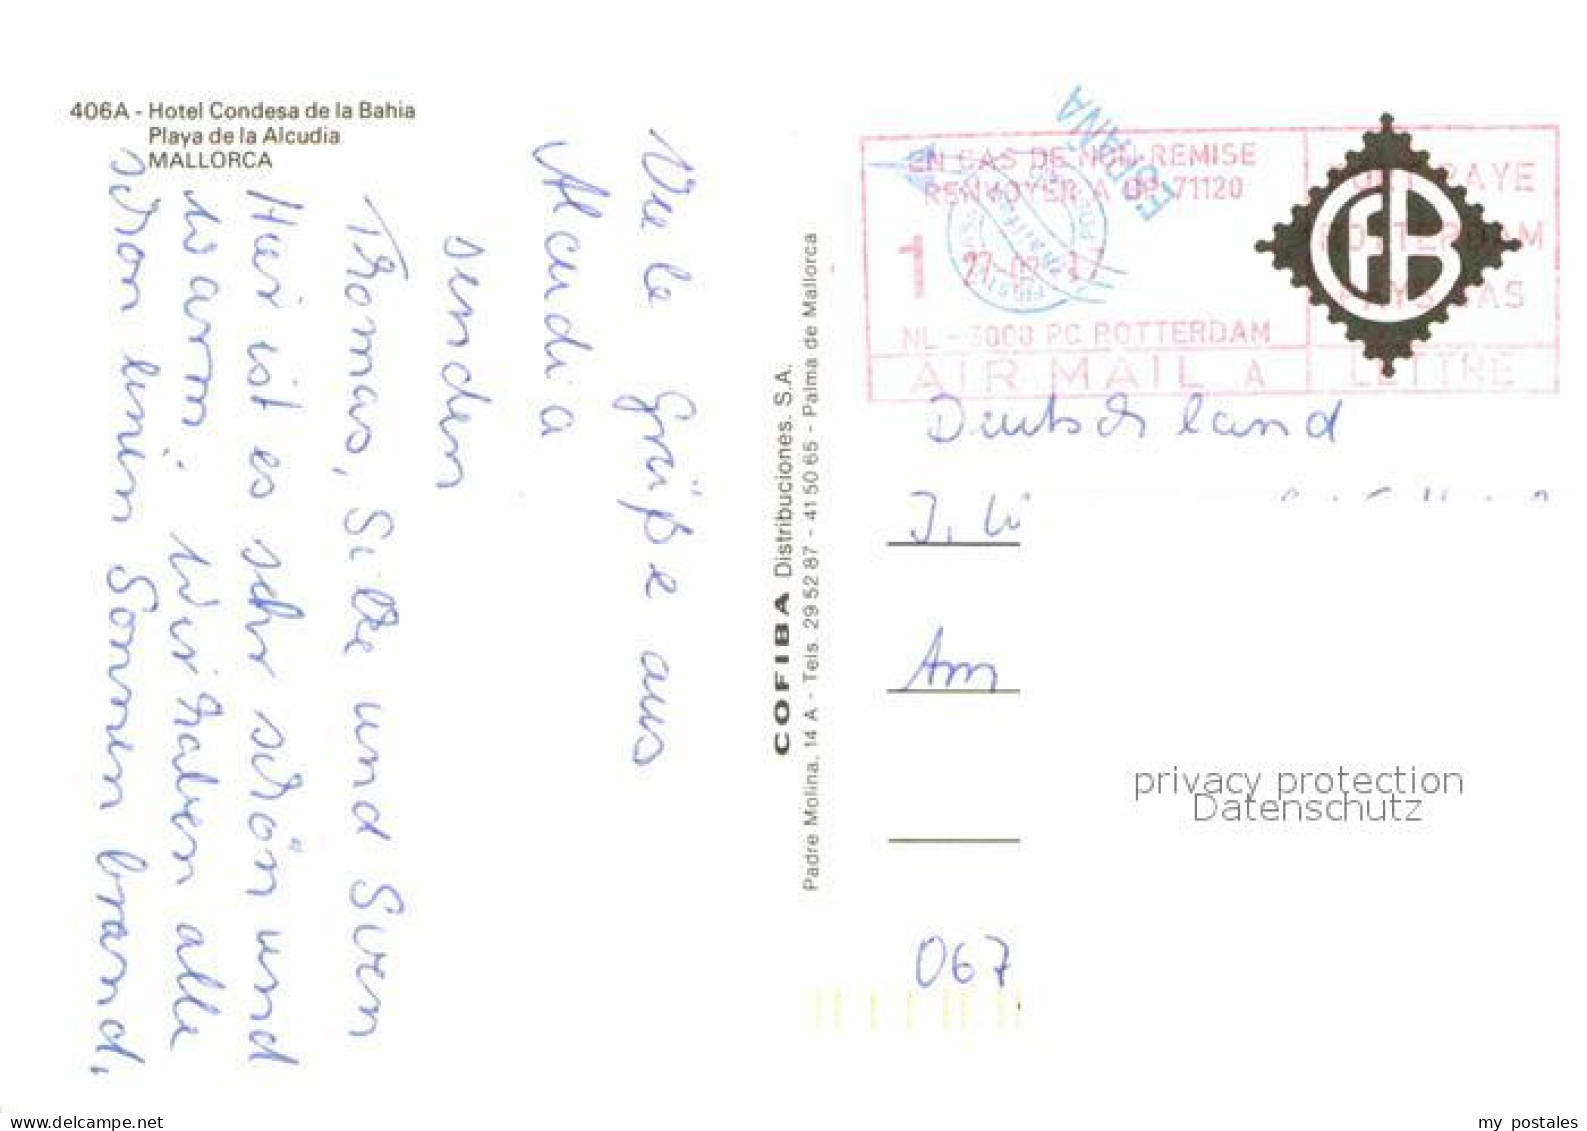 406A - Hotel Condesa de la Bahia
Playa de la Alcudia
MALLORCA
Viele Grüße aus
Alcudia
senden
Thomas, Silke und Sven
Hier ist es sehr schön und
warm. Wir haben alle
schon einen Sonnenbrand,
COFIBA Distribuciones. S.A.
Padre Molina, 14 A - Tels. 29 52 87 - 41 50 65 - Palma de Mallorca
ESPAÑA
EN CAS DE NON-REMISE
RENVOYER A BP 71120
1
NL - 3000 PC ROTTERDAM
AIR MAIL A
PORT PAYE
ROTTERDAM
PAYS-BAS
LETTRE
CFB
Deutschland
Am
067
privacy protection
Datenschutz
www.delcampe.net
my_postales